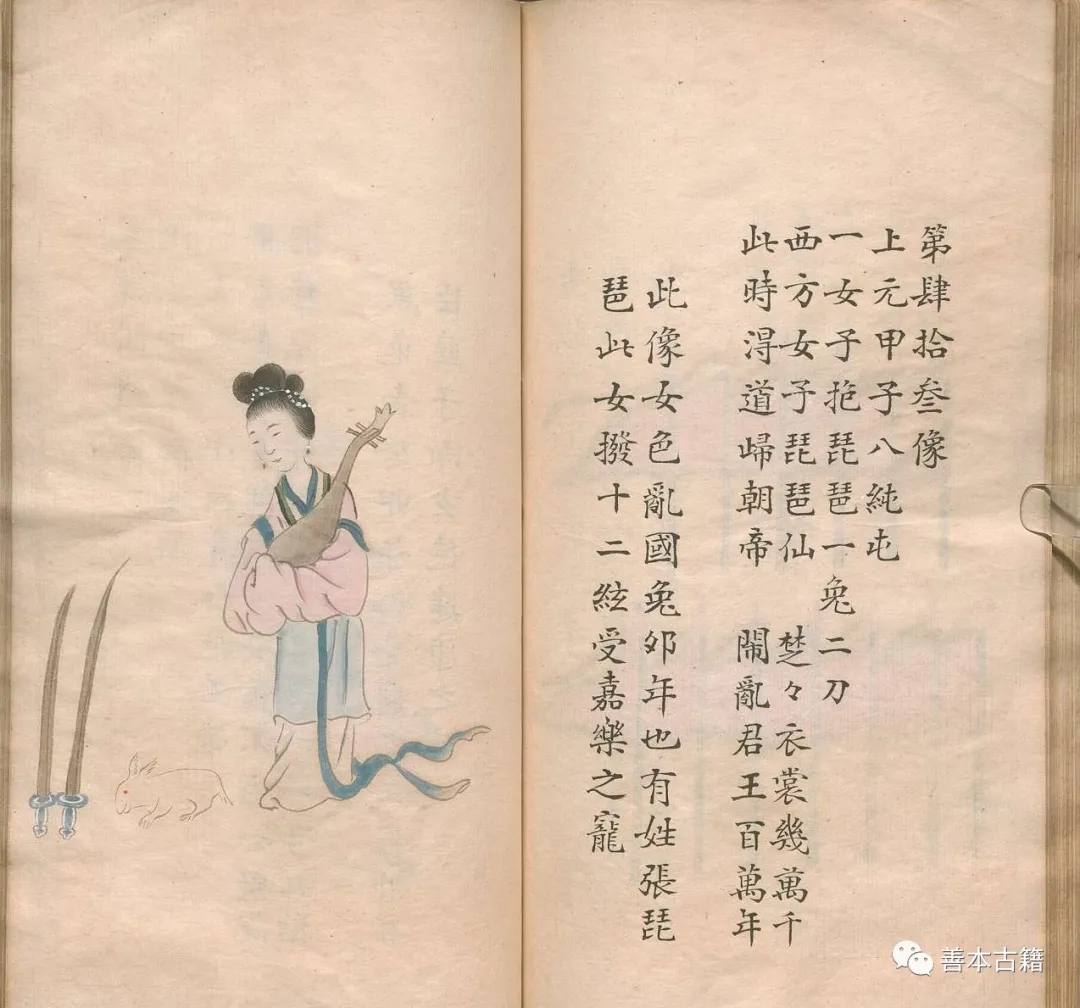 第肆拾叁像
上元甲子八純屯
一女子抱琵琶一兔二刀
西方女子琵琶仙　楚々衣裳幾萬千
此時淂道㱕朝帝　鬧亂君王百萬年
此像女色亂國兔夘年也有姓張琵
琶此女撥十二絃受嘉樂之寵
善本古籍